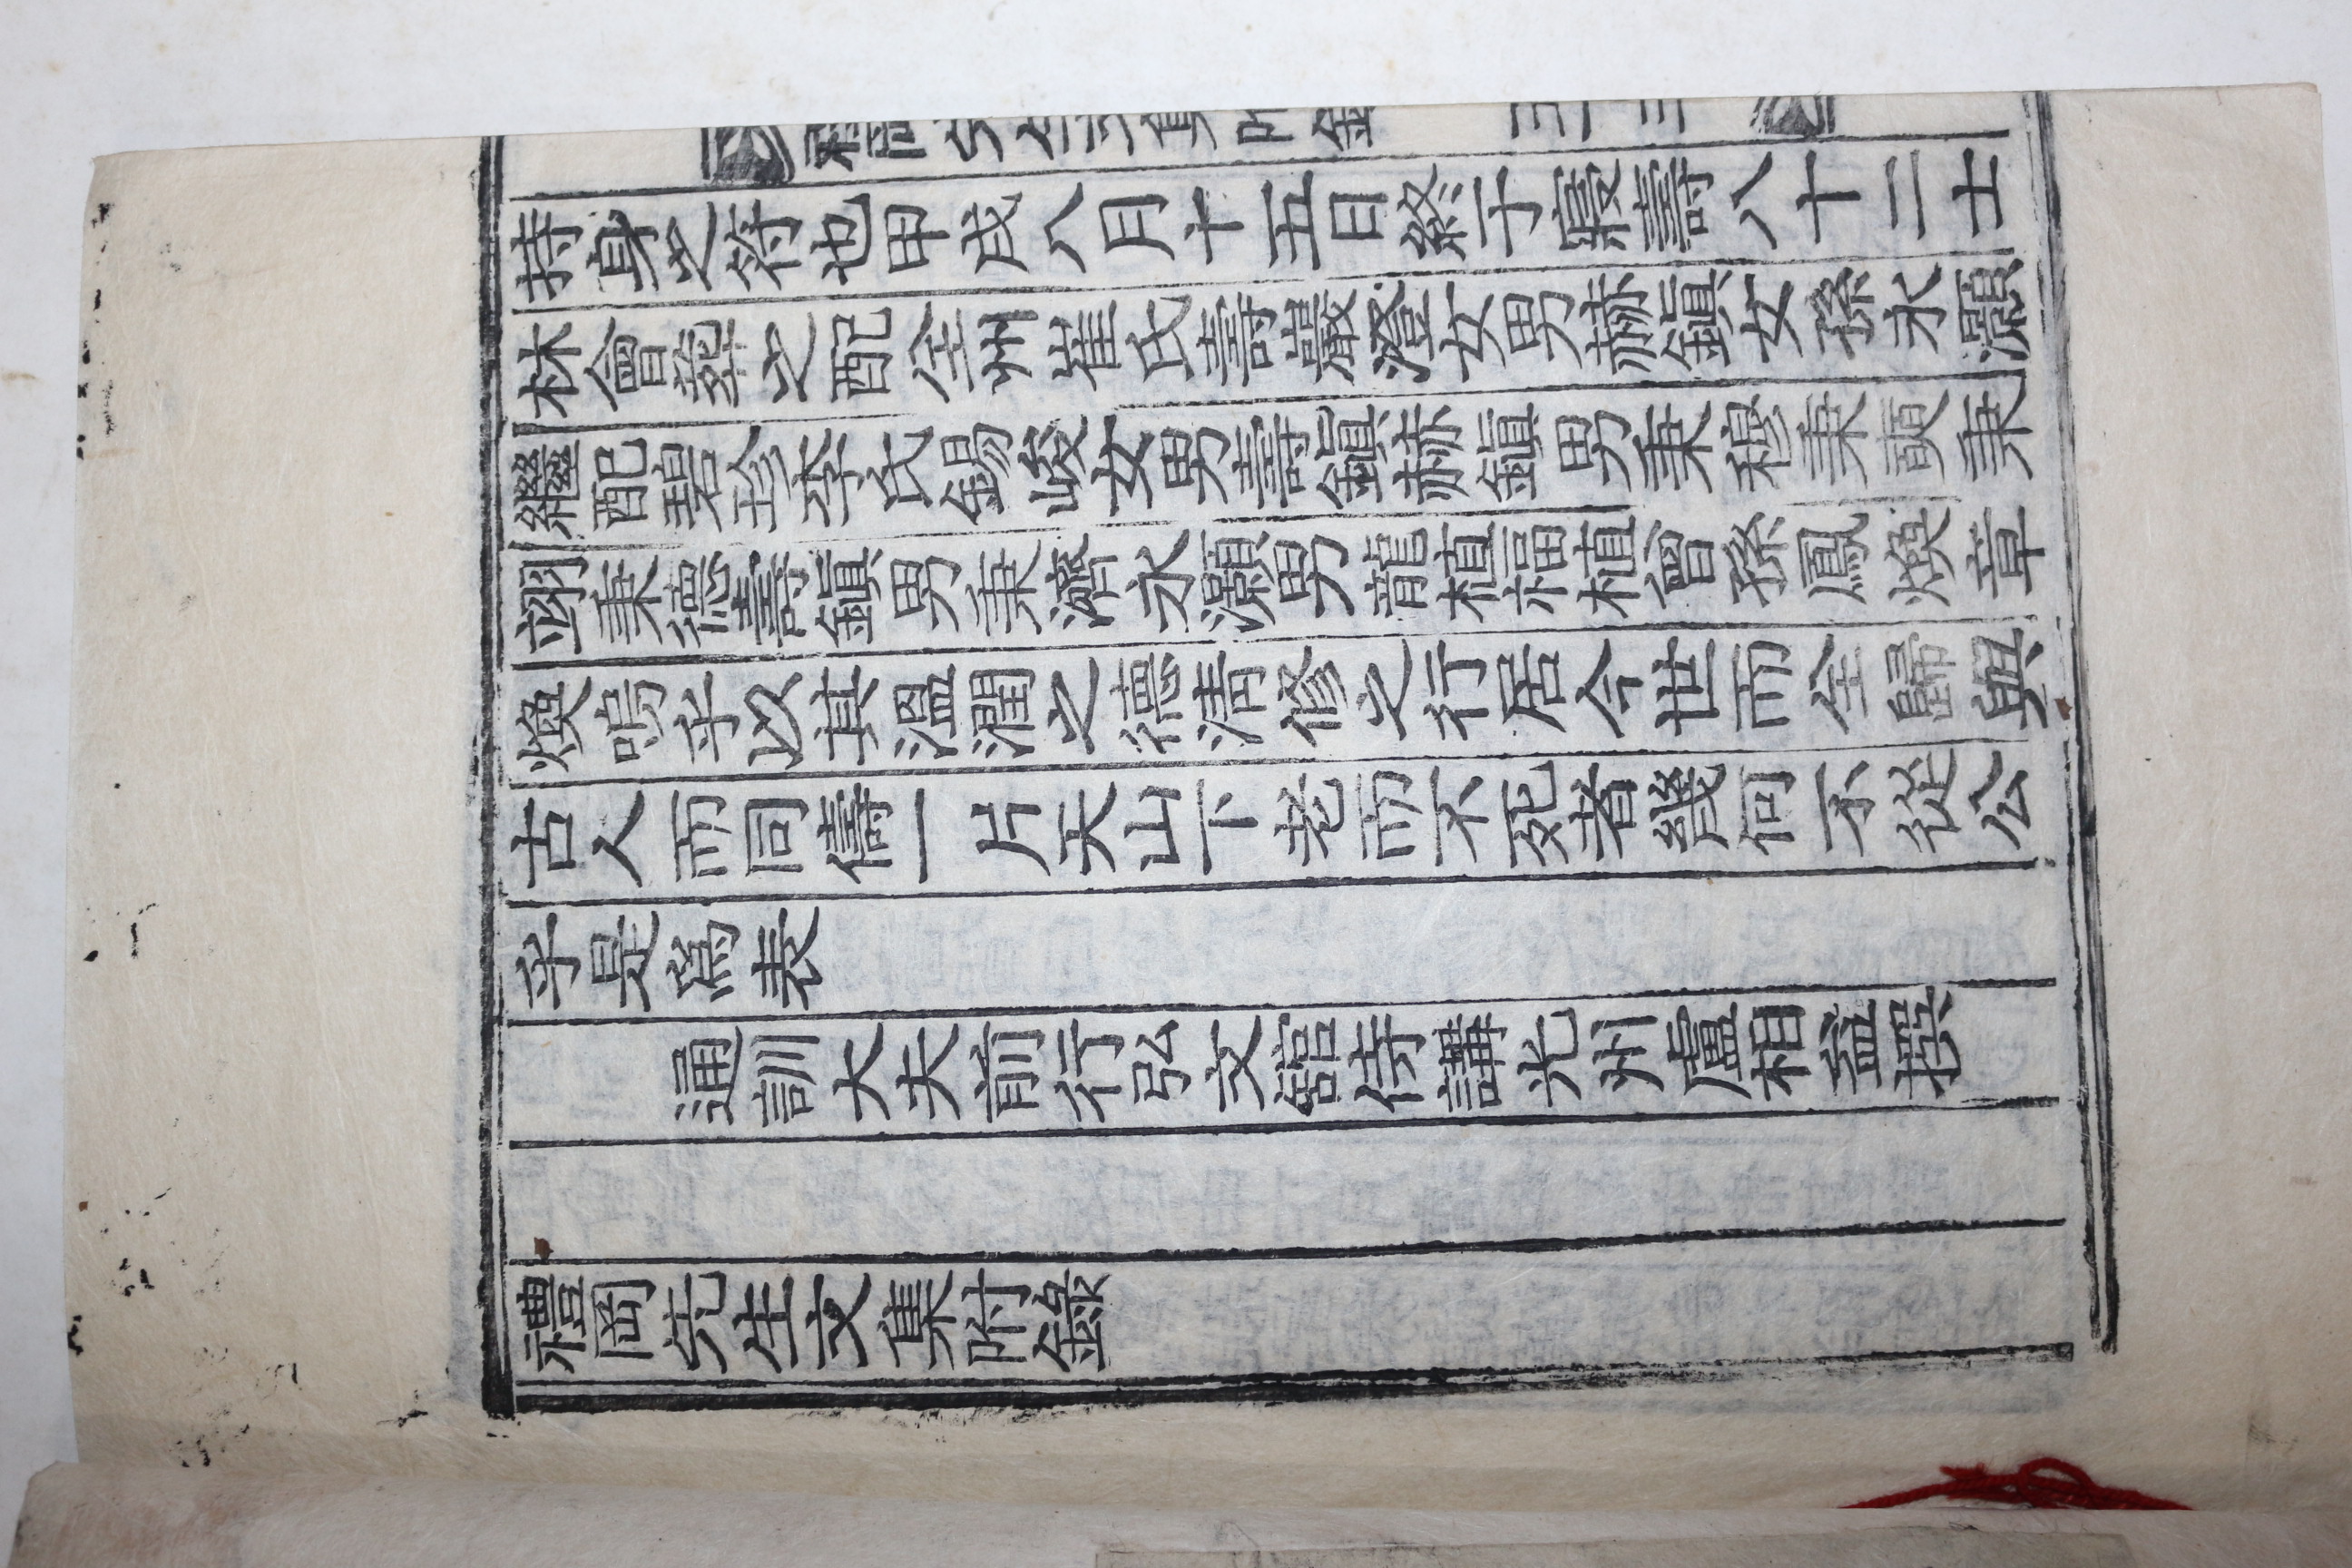 持身之符也甲戌八月十五日終于寢壽八十二士
林會葬之配全州崔氏壽巖澄女男赫鎭女孫永灝
繼配碧珍李氏錫峻女男壽鎭赫鎭男秉穆秉奭秉
翊秉德壽鎭男秉濟永灝男龍植福植曾孫鳳煥章
煥嗚乎以其溫潤之德淸修之行居今世而全歸與
古人而同儔一片天山下老而不死者幾何不從公
乎是爲表
通訓大夫前行弘文舘侍講光州盧相益撰
禮岡先生文集附錄